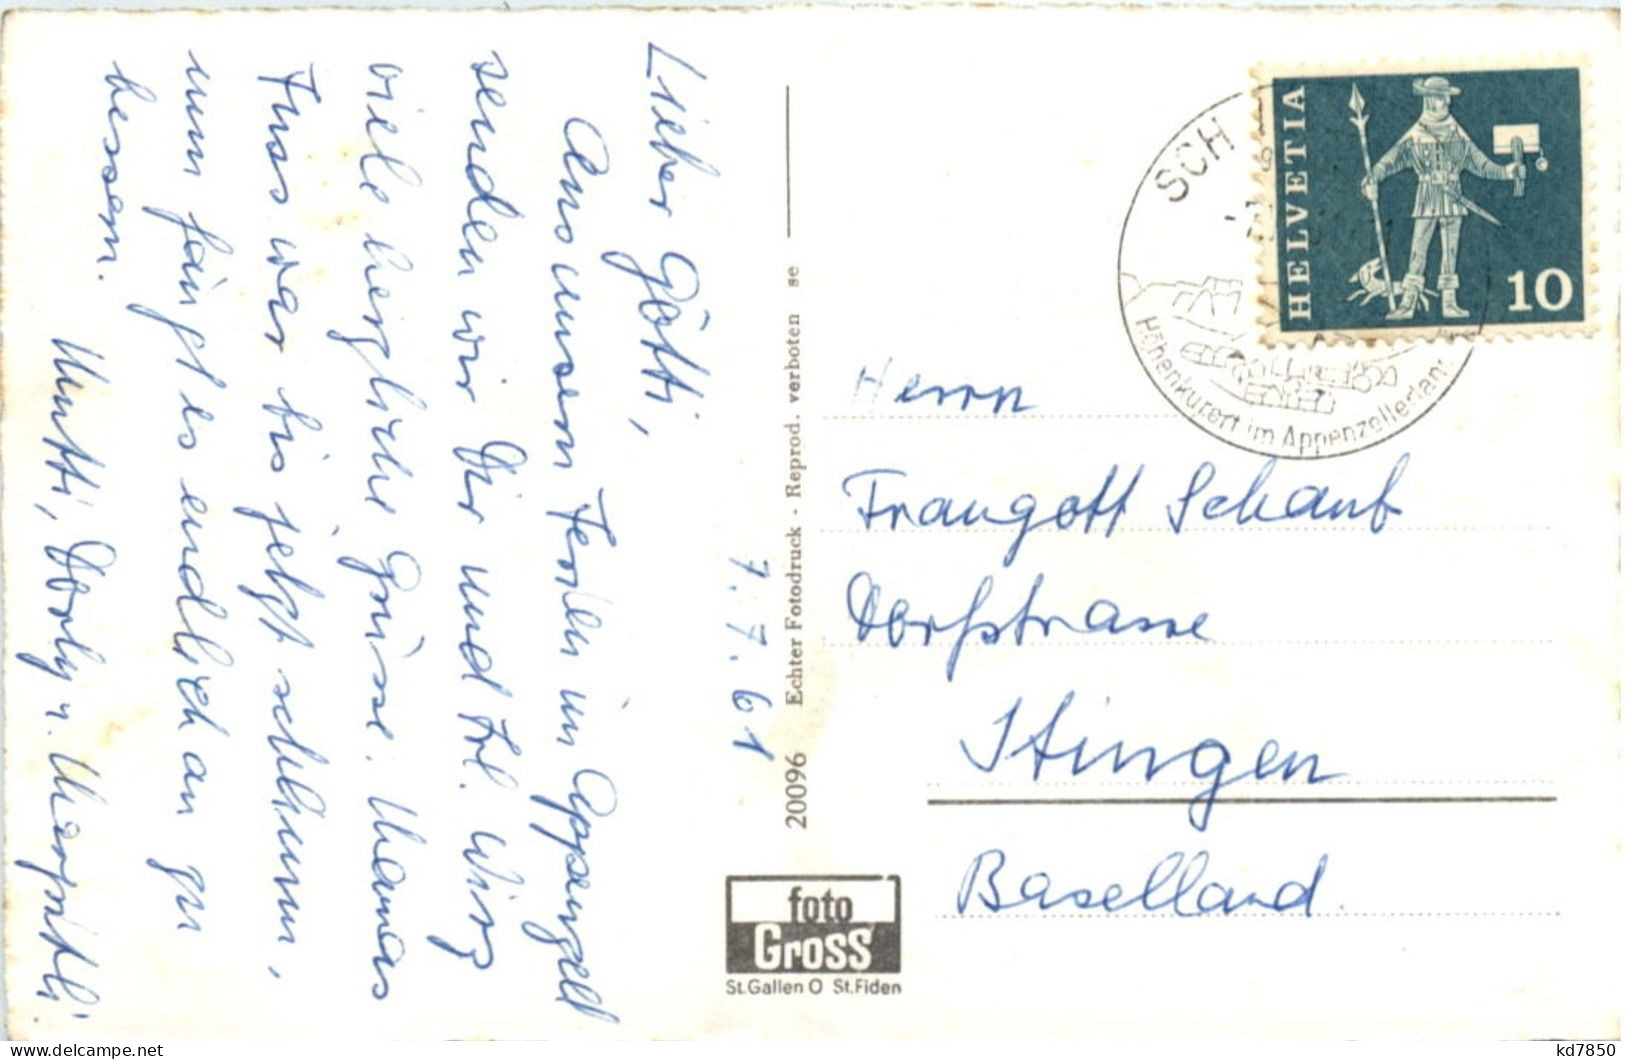 Lieber Götti,
Aus unsern Ferien im Appenzell
senden wir Dir und Frl. Wirz
viele herzliche Grüsse. Mamas
Fuss war bis jetzt schlimm,
nun fängt es endlich an zu
bessern.
Mutti, Dorly u.
7. 7. 61
20096 Echter Fotodruck - Reprod. verboten se
foto
Gross
St.Gallen O St.Fiden
HELVETIA
10
SCH
Höhenkurort im Appenzellerland
Herrn
Traugott Schaub
Dorfstrasse
Itingen
Baselland.
kd7850